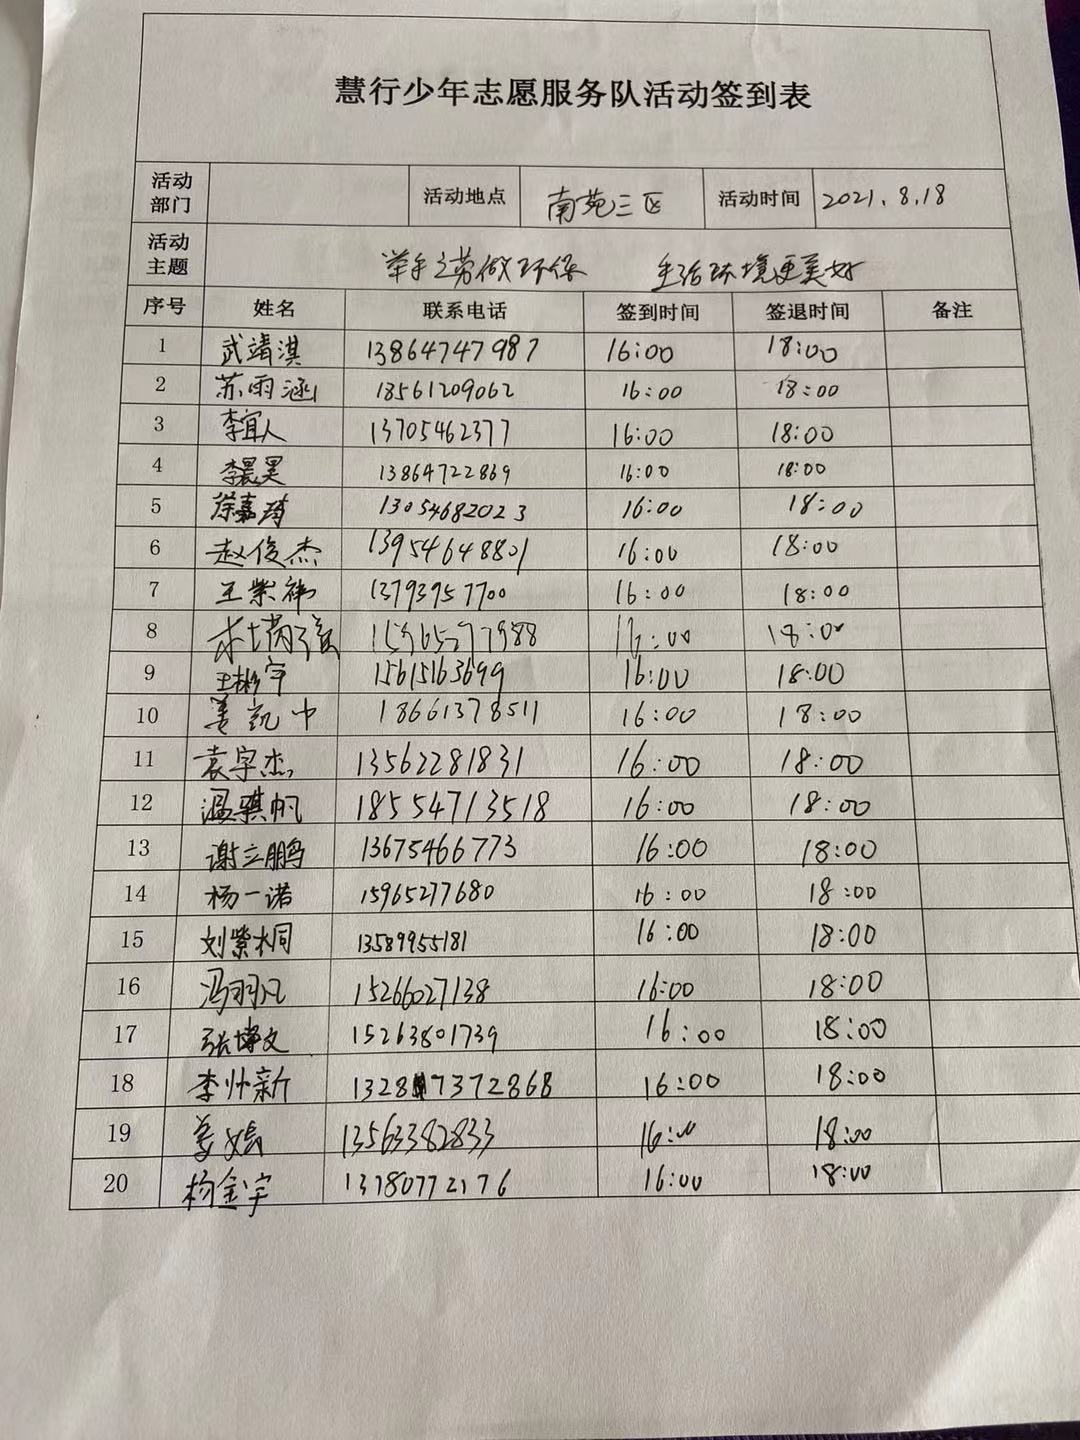 慧行少年志愿服务队活动签到表
活动部门 活动地点 南苑三区 活动时间 2021.8.18
活动主题 举手之劳做环保 生活环境更美好
序号 姓名 联系电话 签到时间 签退时间 备注
1 武靖淇 13864747987 16:00 18:00
2 苏雨涵 18561209062 16:00 18:00
3 李宜人 13705462377 16:00 18:00
4 李晨昊 13864722869 16:00 18:00
5 徐嘉琦 13054682023 16:00 18:00
6 赵俊杰 13954648801 16:00 18:00
7 王紫祎 13793957700 16:00 18:00
8 16:00 18:00
9 王彬宇 15615163699 16:00 18:00
10 姜凯中 18661378511 16:00 18:00
11 袁宇杰 13562281831 16:00 18:00
12 温骐帆 18554713518 16:00 18:00
13 谢立鹏 13675466773 16:00 18:00
14 杨一诺 15965277680 16:00 18:00
15 刘紫桐 13589955181 16:00 18:00
16 冯羽凡 15266027138 16:00 18:00
17 张博文 15263801739 16:00 18:00
18 李帅新 13287372868 16:00 18:00
19 姜 13563382833 16:00 18:00
20 杨金宇 13780772176 16:00 18:00